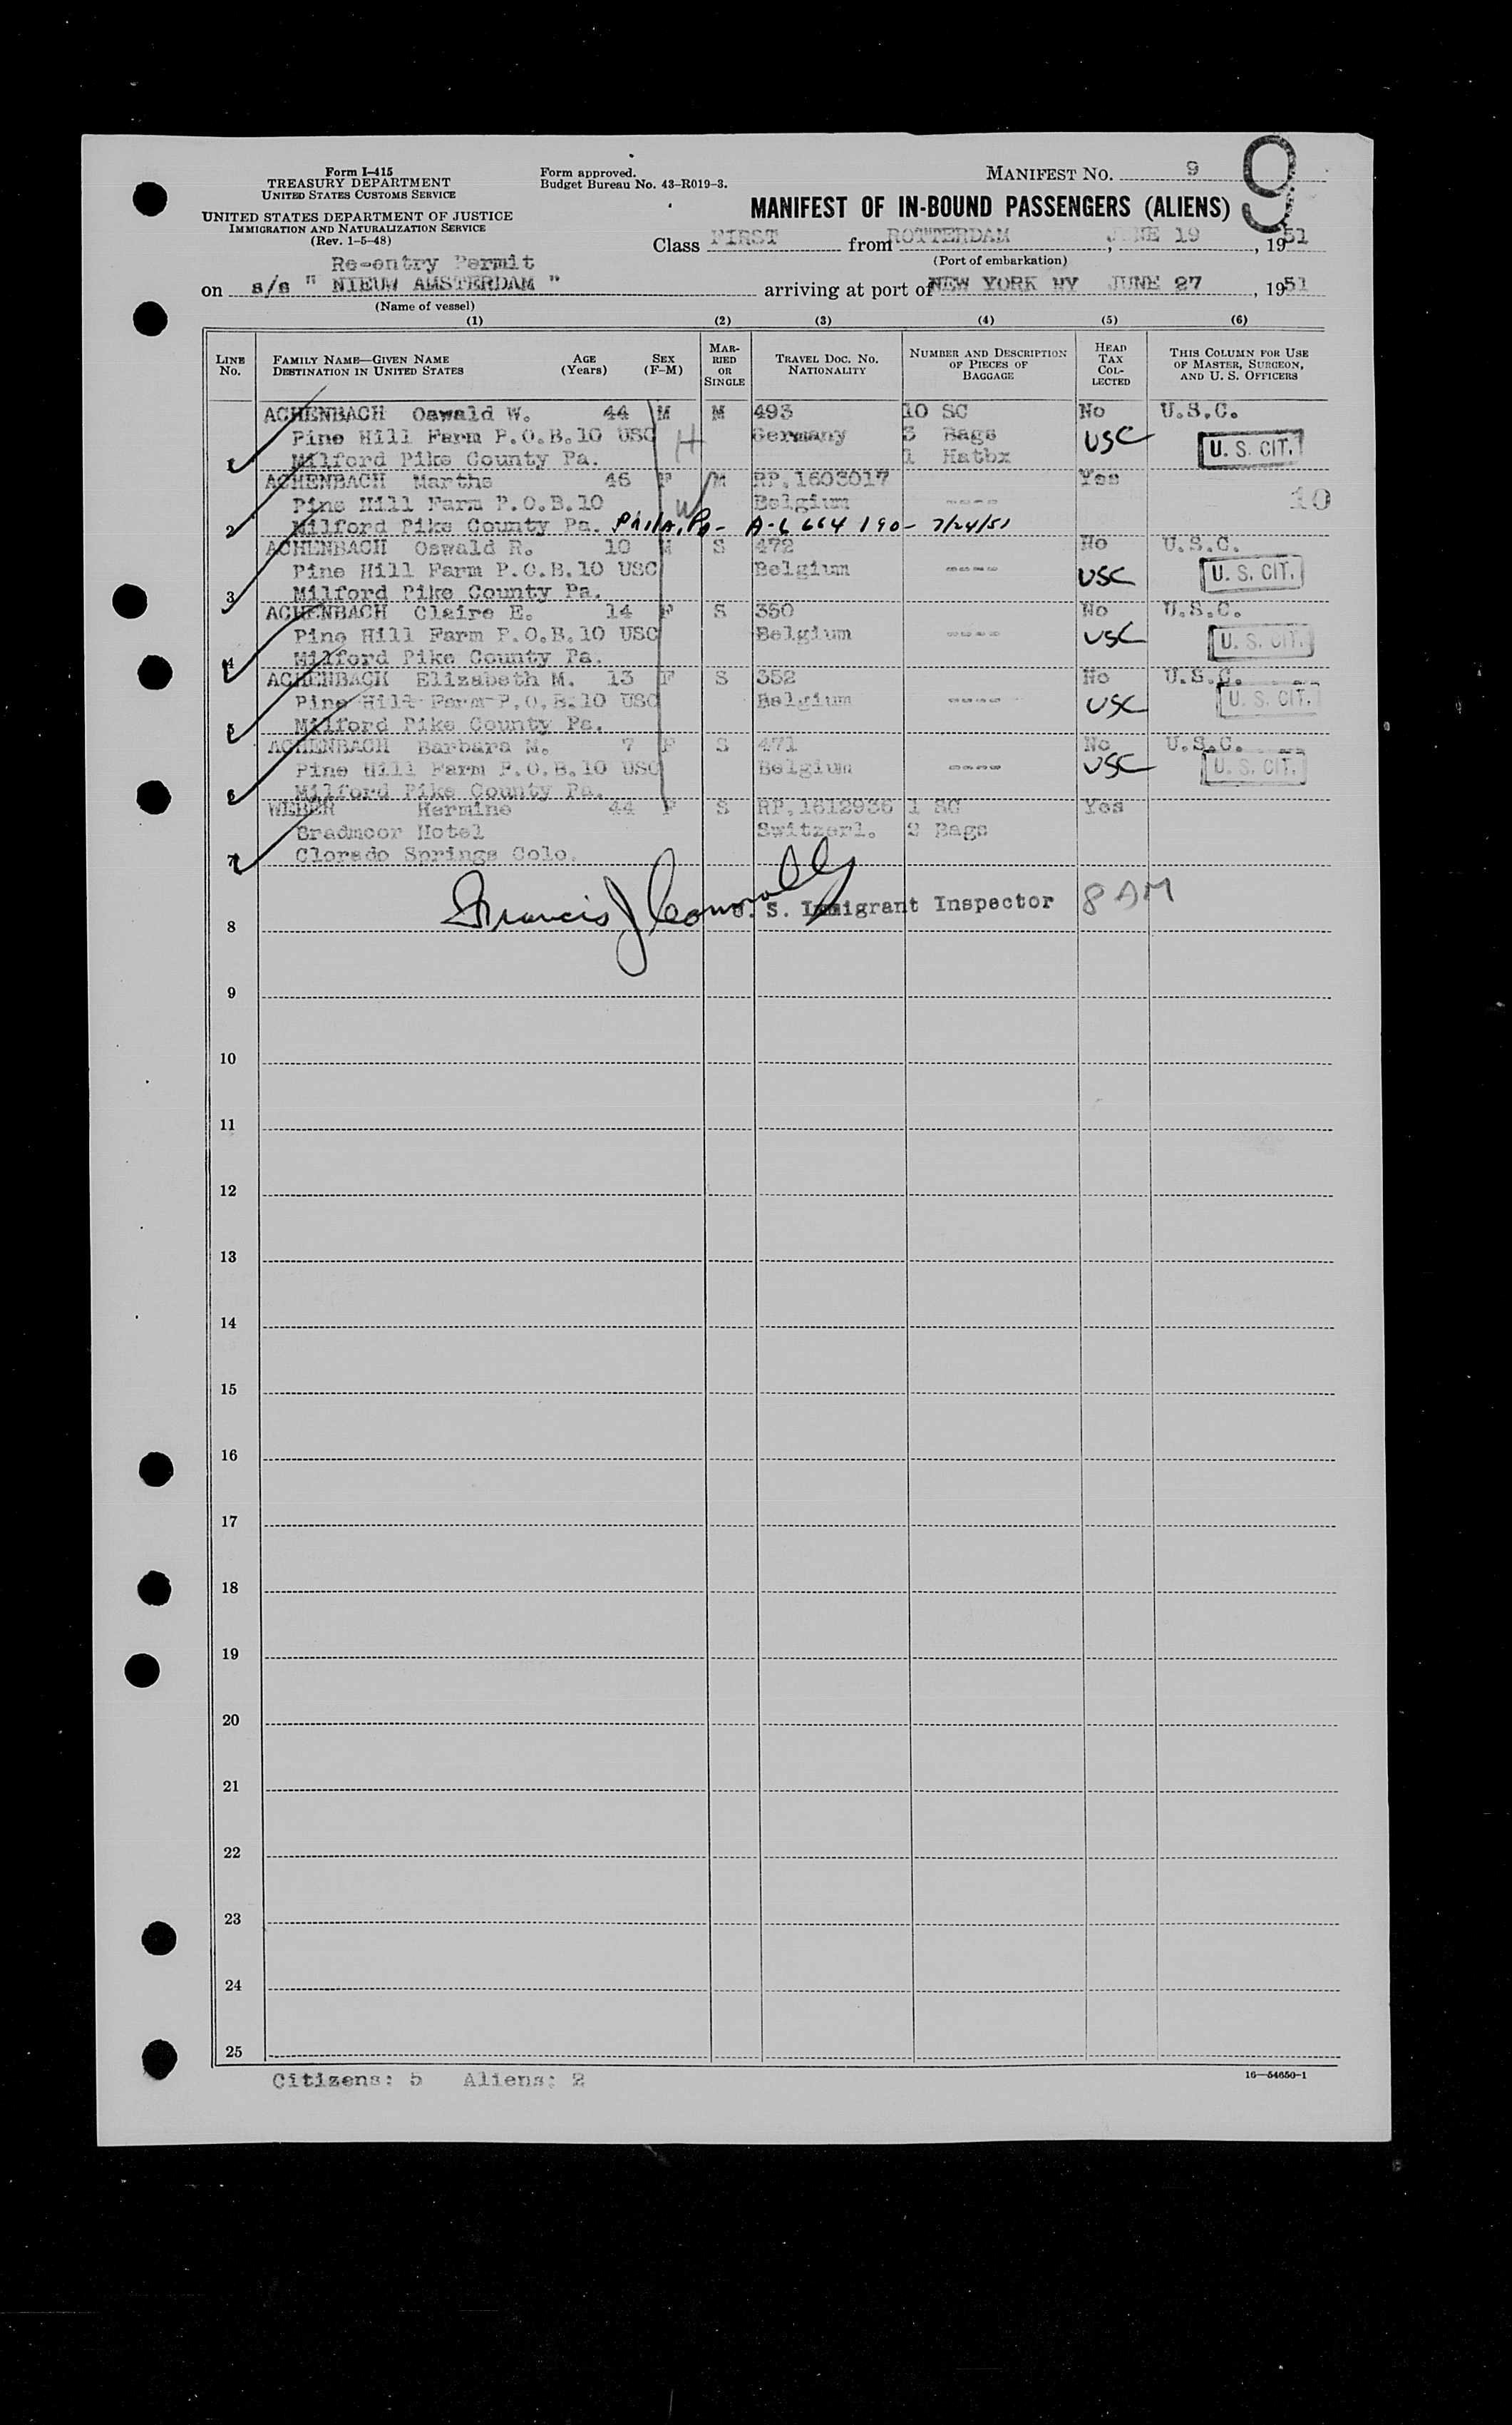 Form I-415
TREASURY DEPARTMENT
UNITED STATES CUSTOMS SERVICE
UNITED STATES DEPARTMENT OF JUSTICE
IMMIGRATION AND NATURALIZATION SERVICE
(Rev. 1-5-48)
Form approved.
Budget Bureau No. 43-R019-3.
MANIFEST NO. 9
9
MANIFEST OF IN-BOUND PASSENGERS (ALIENS)
Class FIRST from ROTTERDAM, JUNE 19, 1951
(Port of embarkation)
Re-entry Permit
on s/s " NIEUW AMSTERDAM " arriving at port of NEW YORK NY JUNE 27, 1951
(Name of vessel)
(1) (2) (3) (4) (5) (6)
LINE No. FAMILY NAME—GIVEN NAME DESTINATION IN UNITED STATES AGE (Years) SEX (F-M) MARRIED OR SINGLE TRAVEL DOC. NO. NATIONALITY NUMBER AND DESCRIPTION OF PIECES OF BAGGAGE HEAD TAX COLLECTED THIS COLUMN FOR USE OF MASTER, SURGEON, AND U. S. OFFICERS
ACHENBACH Oswald W. 44 M M 493 10 SC No U.S.C.
Pine Hill Farm P.O.B.10 USC H Germany 3 Bags USC U. S. CIT.
1 Milford Pike County Pa. 1 Hatbx
ACHENBACH Martha 46 F M RP.1603017 Yes
Pine Hill Farm P.O.B.10 W Belgium ---- 10
2 Milford Pike County Pa. Phila, Pa- A-6 664 190- 7/24/51
ACHENBACH Oswald R. 10 M S 472 No U.S.C.
Pine Hill Farm P.O.B.10 USC Belgium ---- USC U. S. CIT.
3 Milford Pike County Pa.
ACHENBACH Claire E. 14 F S 350 No U.S.C.
Pine Hill Farm P.O.B.10 USC Belgium ---- USC U. S. CIT.
4 Milford Pike County Pa.
ACHENBACH Elizabeth M. 13 F S 352 No U.S.C.
Pine Hill Farm P.O.B.10 USC Belgium ---- USC U. S. CIT.
5 Milford Pike County Pa.
ACHENBACH Barbara M. 7 F S 471 No U.S.C.
Pine Hill Farm P.O.B.10 USC Belgium ---- USC U. S. CIT.
6 Milford Pike County Pa.
WEBER Hermine 44 F S RP.1612936 1 SC Yes
Bradmoor Hotel Switzerl. 2 Bags
7 Clorado Springs Colo.
Francis J Connolly U. S. Immigrant Inspector 8 AM
8
9
10
11
12
13
14
15
16
17
18
19
20
21
22
23
24
25
Citizens: 5 Aliens: 2
16—54650-1